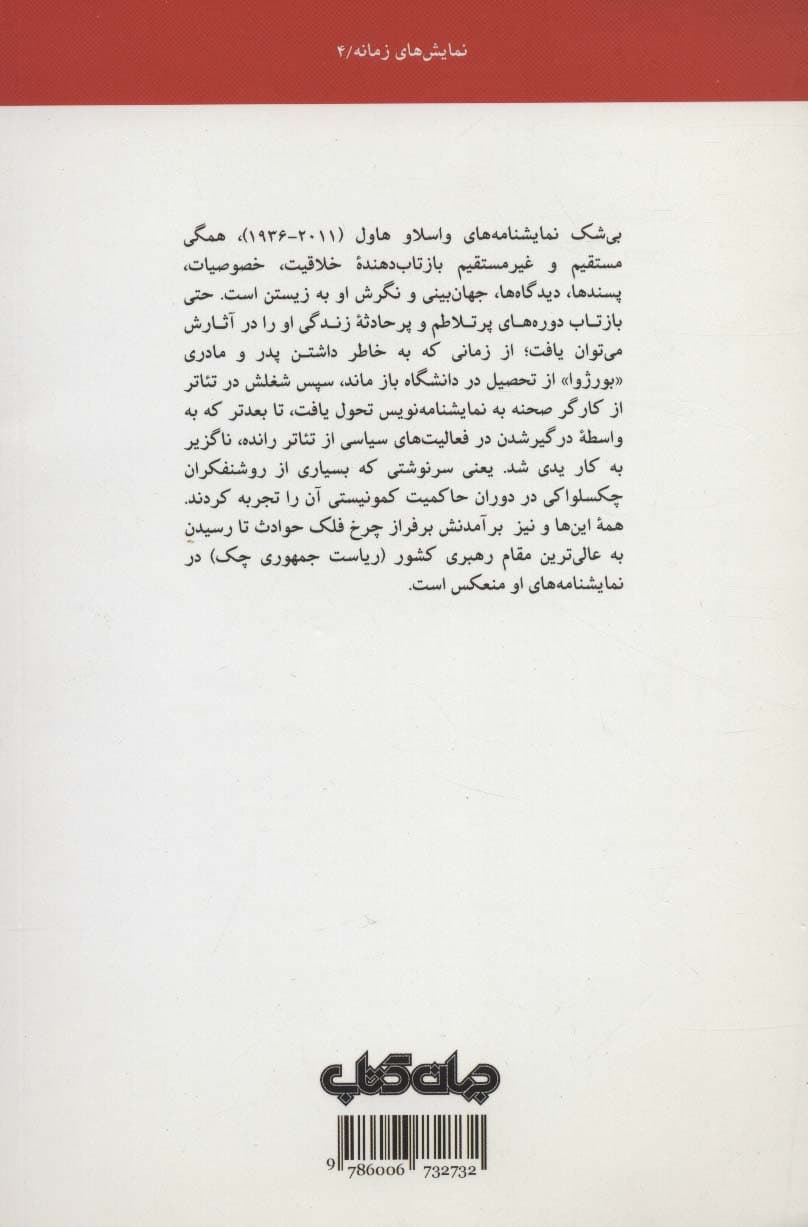 نمایش‌های زمانه/۴
بی‌شک نمایشنامه‌های واسلاو هاول (۲۰۱۱-۱۹۳۶)، همگی
مستقیم و غیرمستقیم بازتاب‌دهندهٔ خلاقیت، خصوصیات،
پسندها، دیدگاه‌ها، جهان‌بینی و نگرش او به زیستن است. حتی
بازتاب دوره‌های پرتلاطم و پرحادثهٔ زندگی او را در آثارش
می‌توان یافت؛ از زمانی که به خاطر داشتن پدر و مادری
«بورژوا» از تحصیل در دانشگاه باز ماند، سپس شغلش در تئاتر
از کارگر صحنه به نمایشنامه‌نویس تحول یافت، تا بعدتر که به
واسطهٔ درگیرشدن در فعالیت‌های سیاسی از تئاتر رانده، ناگزیر
به کار یدی شد. یعنی سرنوشتی که بسیاری از روشنفکران
چکسلواکی در دوران حاکمیت کمونیستی آن را تجربه کردند.
همهٔ این‌ها و نیز برآمدنش برفراز چرخ فلک حوادث تا رسیدن
به عالی‌ترین مقام رهبری کشور (ریاست جمهوری چک) در
نمایشنامه‌های او منعکس است.
جهان کتاب
9 786006 732732